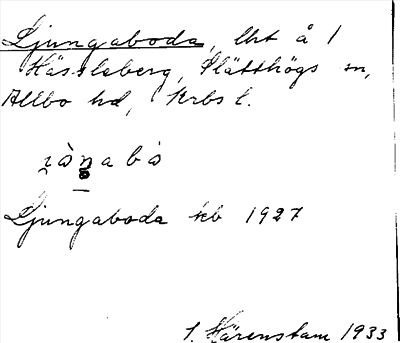 Ljungaboda, lht å 1
Hässleberg, Slätthögs sn,
Allbo hd, Krbs l.
Ljungaboda jkb 1927
S. Härenstam 1933